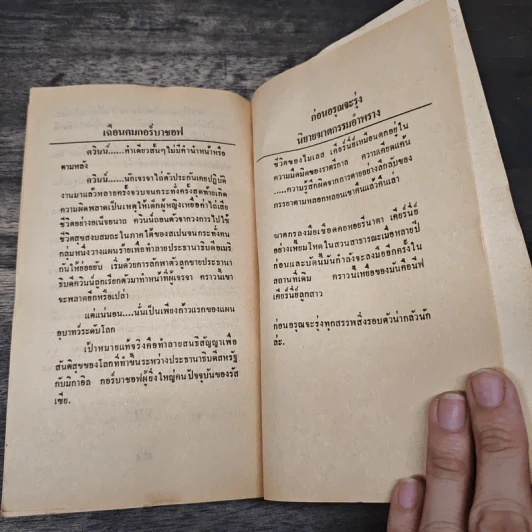 เฉือนคมกอร์บาชอฟ
ควินน์.....คำเดียวสั้นๆ ไม่มีคำนำหน้าหรือ
ตามหลัง
ควินน์.....นักเจรจาไถ่ตัวประกันเคยปฏิบัติ
งานมาแล้วหลายครั้งจวบจนกระทั่งครั้งสุดท้ายเกิด
ความผิดพลาดเป็นเหตุให้เด็กผู้หญิงเหยื่อค่าไถ่เสีย
ชีวิตอย่างอเน็จอนาถ ควินน์ถอนตัวจากวงการไปใช้
ชีวิตสุขสงบสมถะในภาคใต้ของสเปนจนกระทั่งคน
กลุ่มหนึ่งวางแผนร้ายเพื่อทำลายประธานาธิบดีอเมริ
กันให้ย่อยยับ เริ่มด้วยการลักพาตัวลูกชายประธานา
ธิบดีควินน์ถูกเรียกตัวมาทำหน้าที่ผู้เจรจา คราวนี้เขา
จะพลาดอีกหรือเปล่า
แต่แน่นอน....นั่นเป็นเพียงก้าวแรกของแผน
อุบาทว์ระดับโลก
เป้าหมายแท้จริงคือทำลายสนธิสัญญาเพื่อ
สันติสุขของโลกที่ทำขึ้นระหว่างประธานาธิบดีสหรัฐ
กับมิกาอิล กอร์บาชอฟผู้ยิ่งใหญ่คนปัจจุบันของรัส
เซีย.
ก่อนอรุณจะรุ่ง
นิยายฆาตกรรมอำพราง
ชีวิตของไมเลส เคียร์นีย์เหมือนตกอยู่ใน
ความมืดมิดของราตรีกาล ความเคียดแค้น
....ความรู้สึกผิดจากการตายอย่างลึกลับของ
ภรรยาตามหลอกหลอนเขาคืนแล้วคืนเล่า
ฆาตกรลงมือเชือดคอหอยรีนาตา เคียร์นีย์
อย่างเหี้ยมโหดในสวนสาธารณะเมื่อหลายปี
ก่อนและบัดนี้มันกำลังจะลงมืออีกครั้งใน
สถานที่เดิม คราวนี้เหยื่อของมันคือนีฟ
เคียร์นีย์ลูกสาว
ก่อนอรุณจะรุ่งทุกสรรพสิ่งรอบตัวน่ากลัวนัก
ล่ะ.